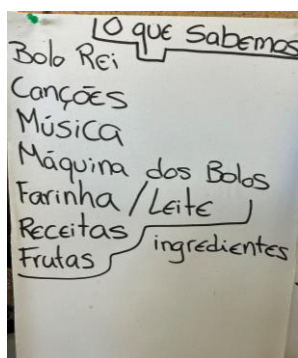 O que Sabemos
Bolo Rei
Canções
Música
Máquina dos Bolos
Farinha / Leite
Receitas
ingredientes
Frutas